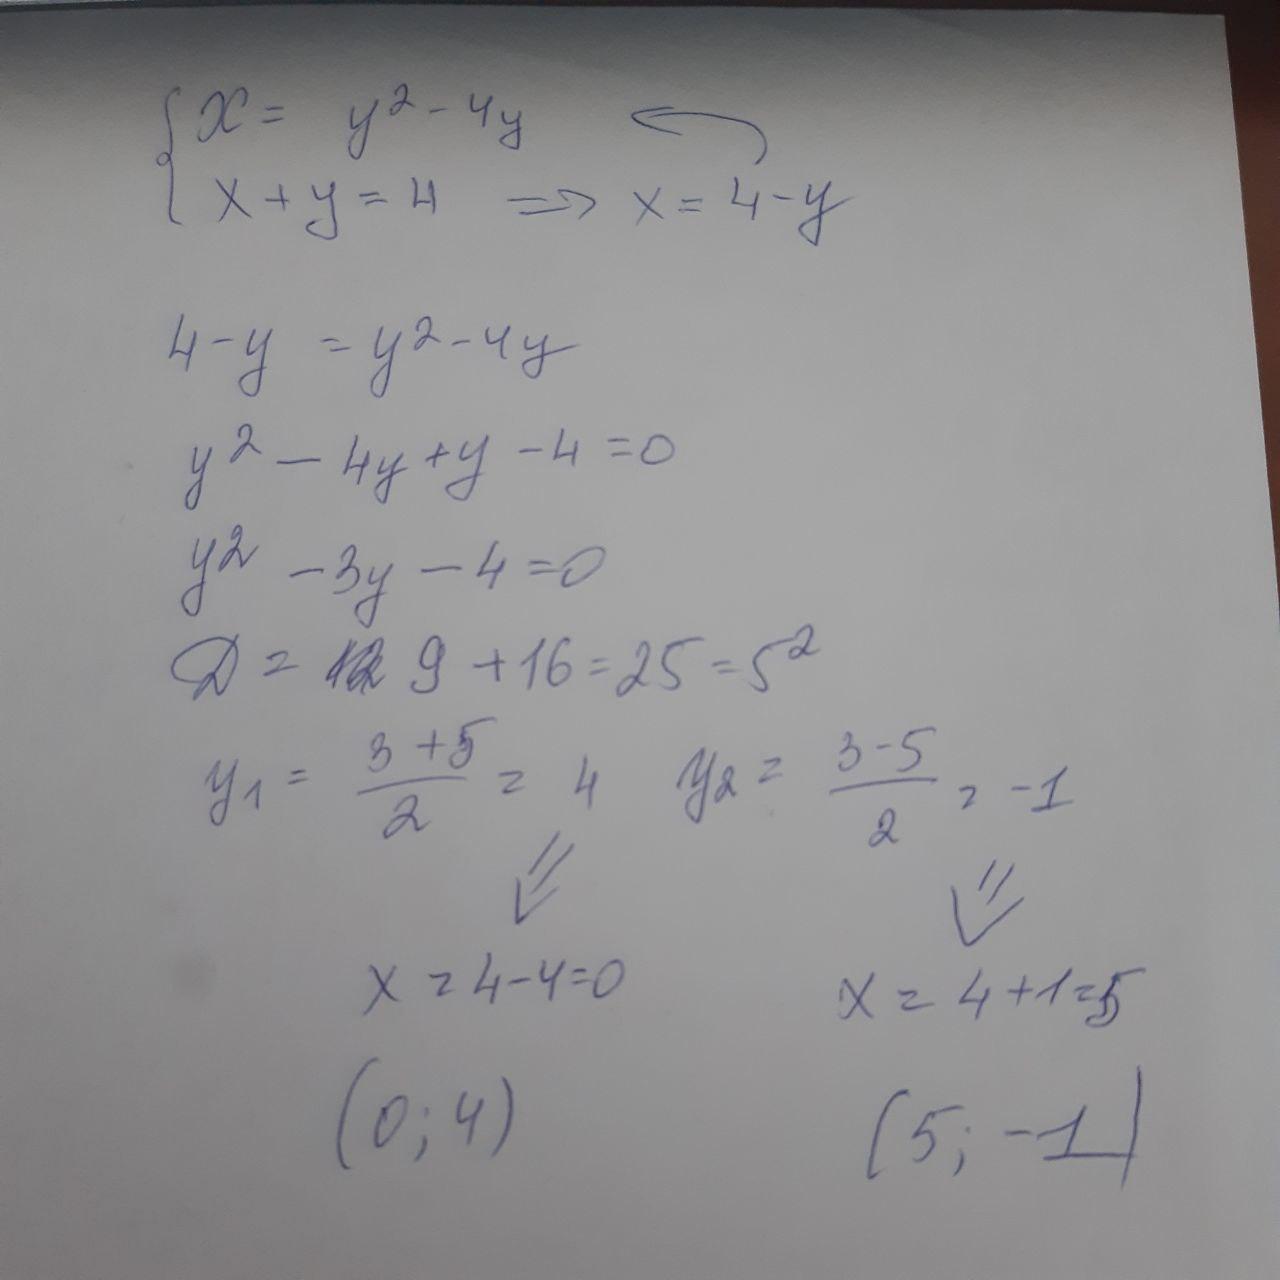 { x = y² - 4y
x + y = 4 ⇒ x = 4 - y
4 - y = y² - 4y
y² - 4y + y - 4 = 0
y² - 3y - 4 = 0
D = 9 + 16 = 25 = 5²
y₁ = (3 + 5)/2 = 4 y₂ = (3 - 5)/2 = -1
x = 4 - 4 = 0 x = 4 + 1 = 5
(0; 4) (5; -1)